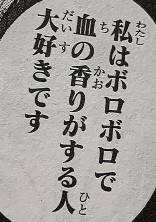 私はボロボロで
血の香りがする人
大好きです